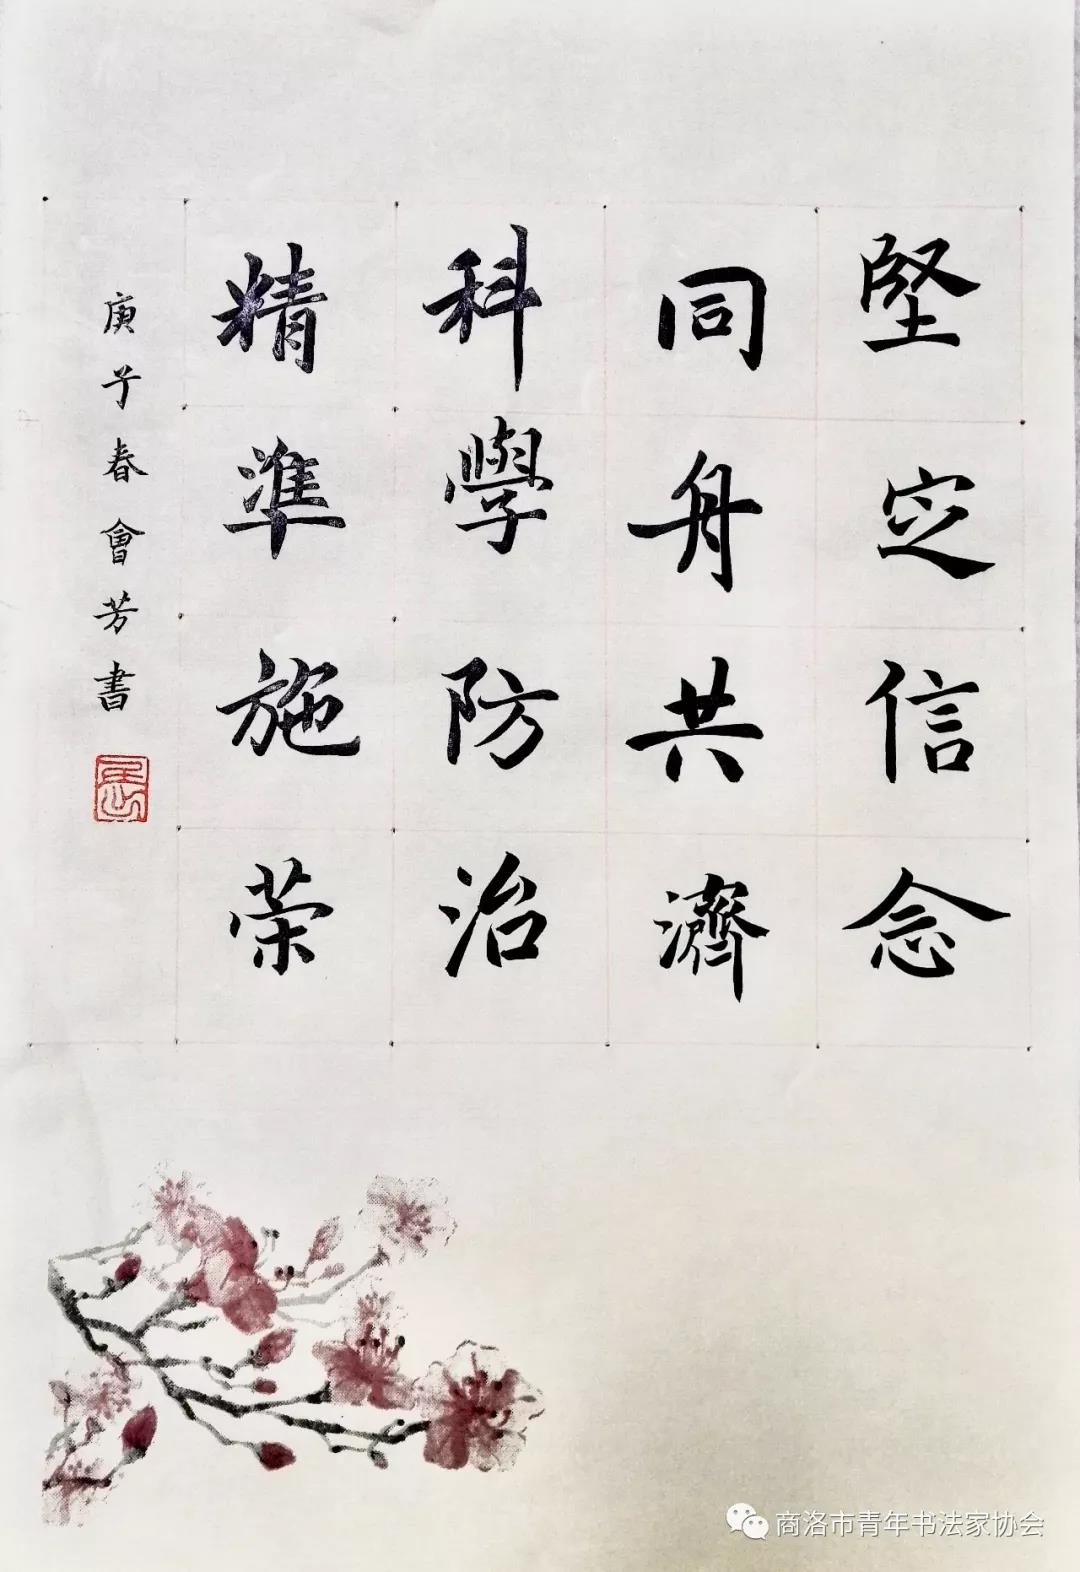 堅定信念
同舟共濟
科學防治
精準施荣
庚子春會芳書
商洛市青年书法家协会